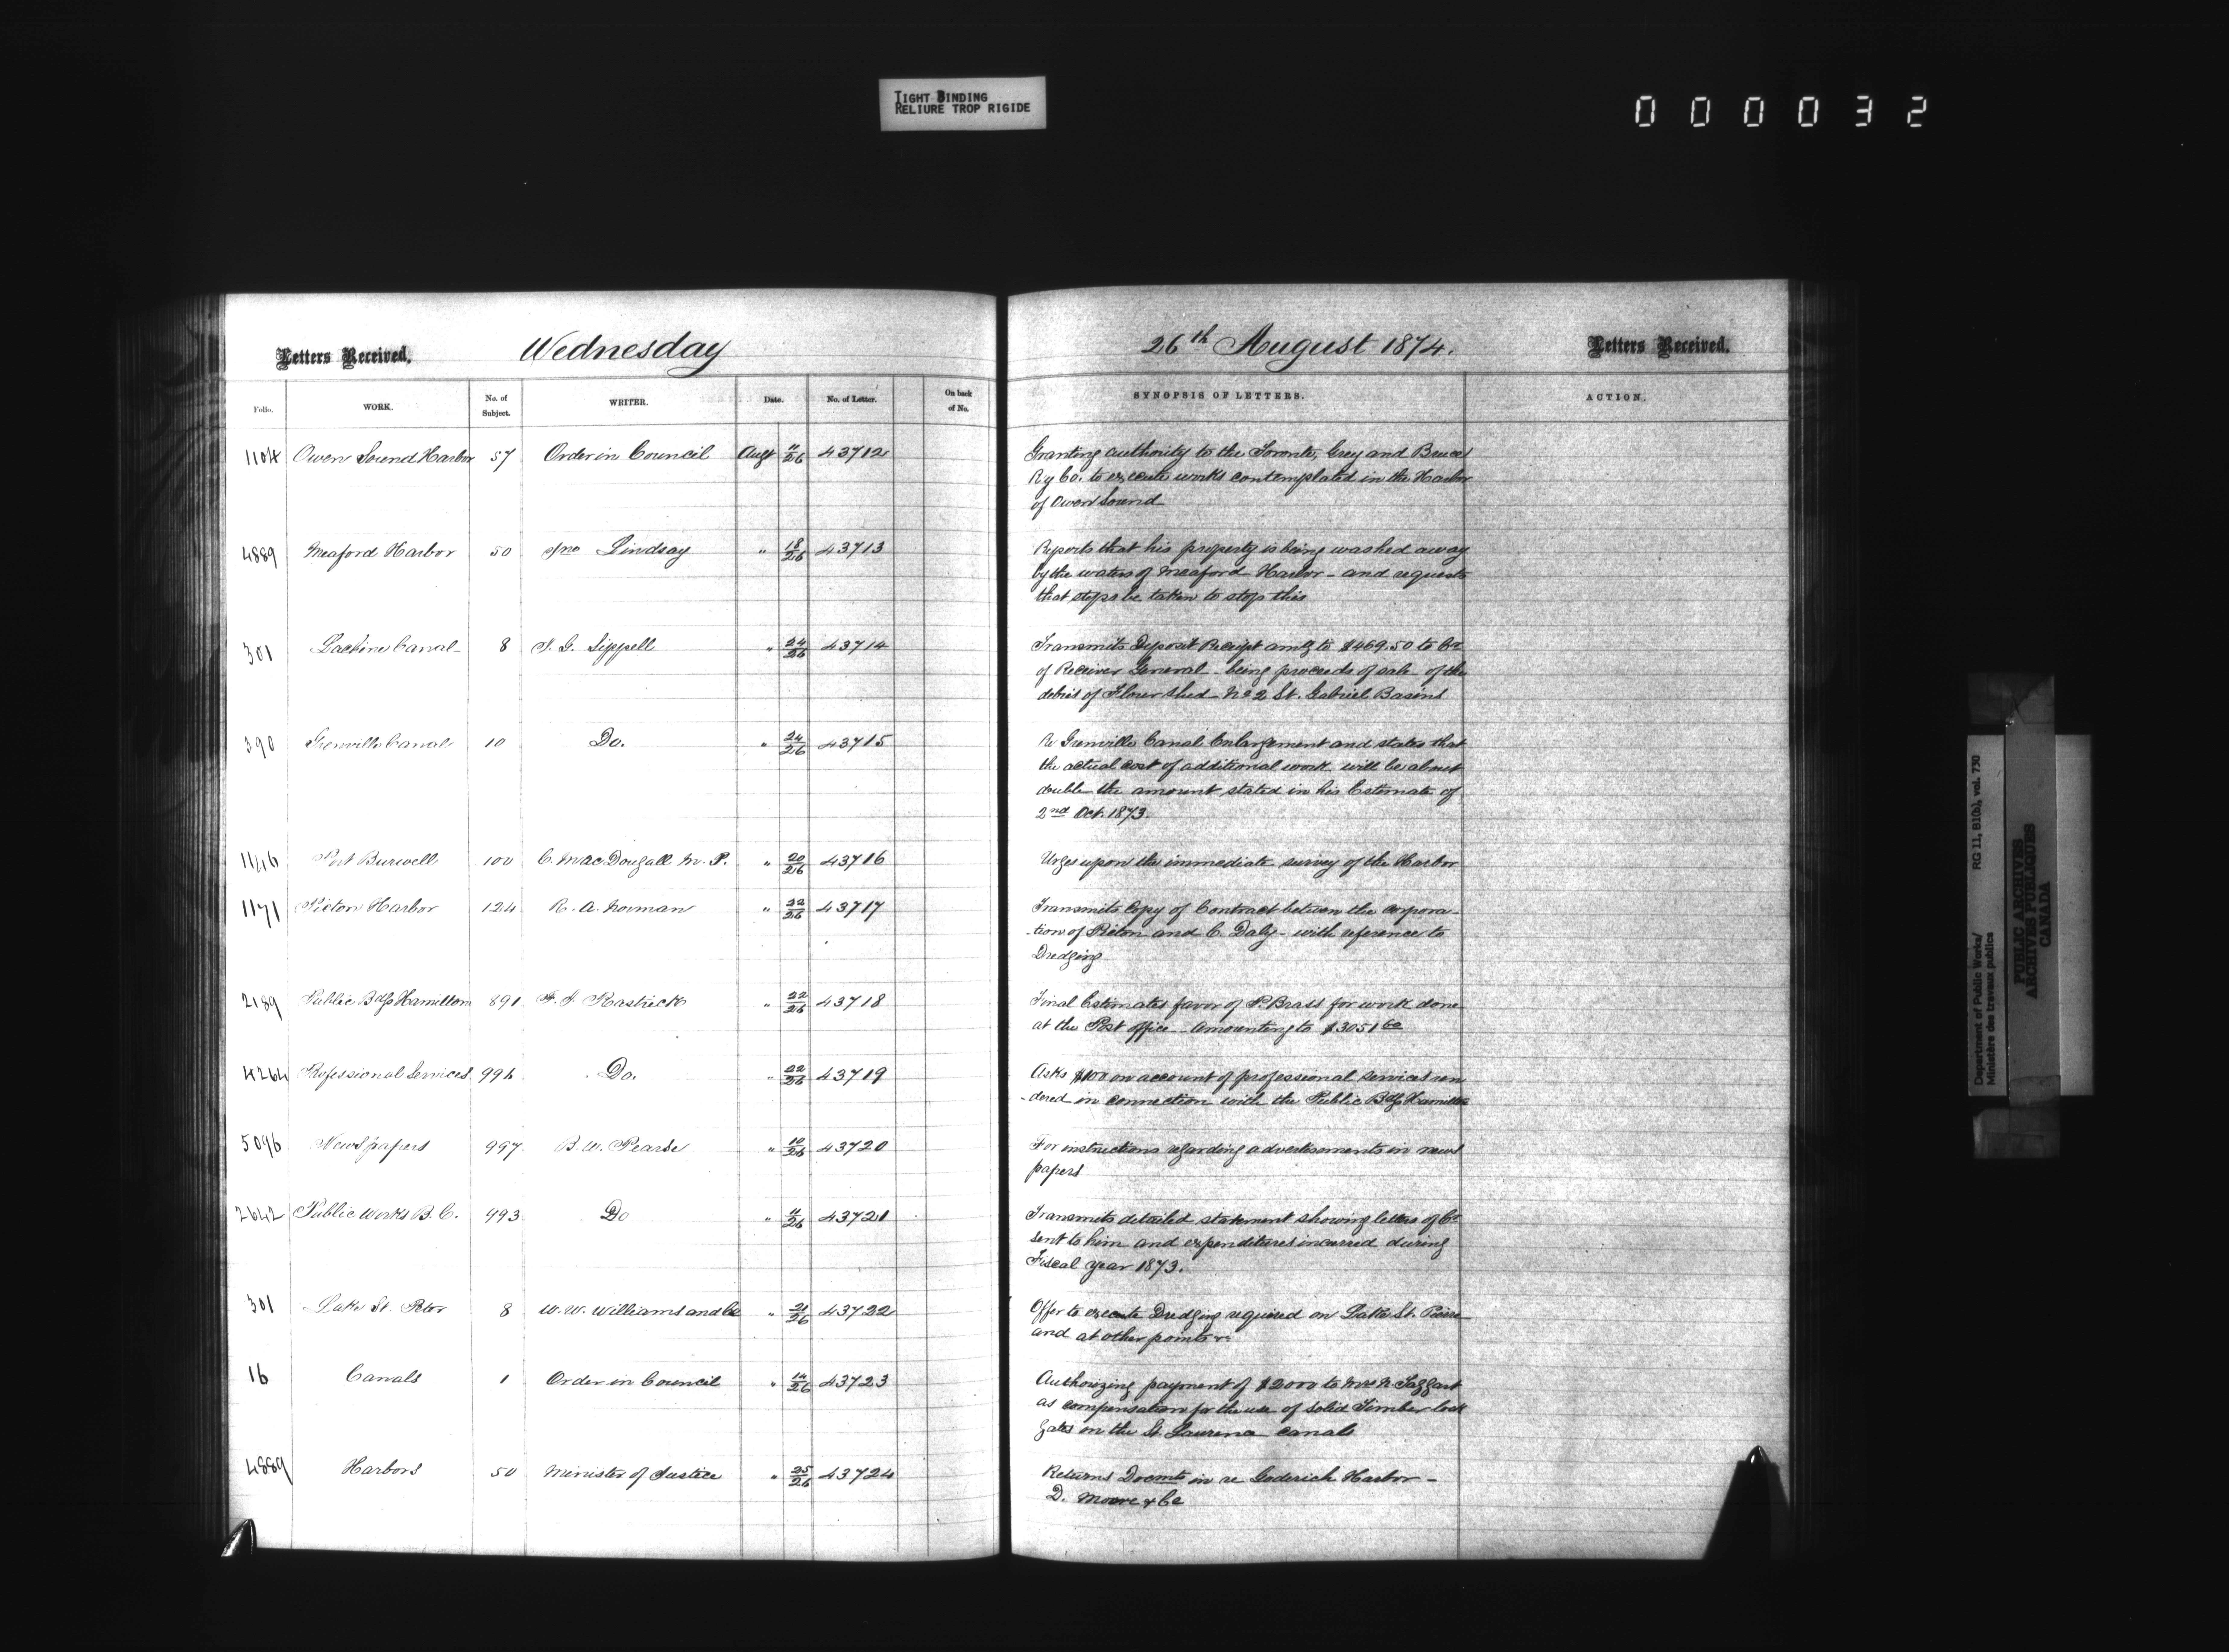 TIGHT BINDING
RELIURE TROP RIGIDE
000032
Letters Received, Wednesday 26th August 1874. Letters Received,
Folio. WORK. No. of Subject. WRITER. Date. No. of Letter. On back of No. SYNOPSIS OF LETTERS. ACTION.
1104 Owen Sound Harbor 57 Order in Council Augt 11/26 43712 Granting authority to the Toronto, Grey and Bruce
Ry Co. to execute works contemplated in the Harbor
of Owen Sound
4889 Meaford Harbor 50 Jno Lindsay " 18/26 43713 Reports that his property is being washed away
by the waters of Meaford Harbor - and requests
that steps be taken to stop this
301 Lachine Canal 8 J. G. Sippell " 24/26 43714 Transmits Deposit Receipt amtg to $469.50 to Cr
of Receiver General - being proceeds of sale of the
debris of Flour shed No 2 St. Gabriel Basins
390 Grenville Canal 10 Do. " 24/26 43715 Re Grenville Canal Enlargement and states that
the actual cost of additional work will be about
double the amount stated in his Estimate of
2nd Oct. 1873.
1116 Port Burwell 100 C. MacDougall M. P. " 20/26 43716 Urges upon the immediate survey of the Harbor
1171 Picton Harbor 124 R. A. Norman " 22/26 43717 Transmits Copy of Contract between the corpora-
-tion of Picton and C. Daly - with reference to
Dredging
2189 Public Bdgs Hamilton 891 F. J. Rastrick " 22/26 43718 Final Estimates favor of P. Brass for work done
at the Post office - amounting to $3051 60
4264 Professional Services 996 Do. " 22/26 43719 Asks $100 on account of professional services ren
-dered in connection with the Public Bdgs Hamilton
5096 Newspapers 997 B. W. Pearse " 10/26 43720 For instructions regarding advertisements in news
papers
2642 Public Works B. C. 993 Do " 11/26 43721 Transmits detailed statement showing letters of Cr
sent to him and expenditures incurred during
Fiscal year 1873.
301 Lake St. Peter 8 W. W. Williams and Co " 21/26 43722 Offer to execute Dredging required on Lake St. Pierre
and at other points
16 Canals 1 Order in Council " 14/26 43723 Authorizing payment of $2000 to Mrs Taggart
as compensation for the use of solid Timber lock
gates on the St. Laurence canals
4889 Harbors 50 Minister of Justice " 25/26 43724 Returns Docmts in re Goderich Harbor -
D. Moore & Co
Department of Public Works/ RG 11, B1(b), vol. 730
Ministère des travaux publics
PUBLIC ARCHIVES
ARCHIVES PUBLIQUES
CANADA